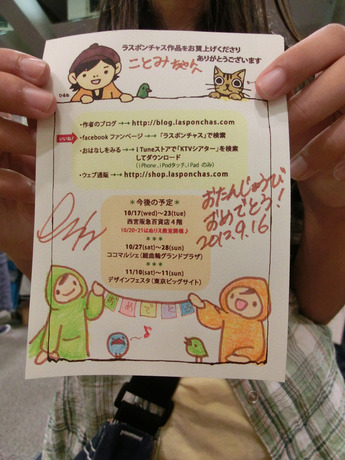 ラスポンチャス作品をお買上げくださり
ありがとうございます
ことみちゃん
・作者のブログ →→ http://blog.lasponchas.com
いいね!
・facebook ファンページ →→「ラスポンチャス」で検索
・おはなしをみる →→ iTuneストアで「KTVシアター」を検索
してダウンロード
(iPhone、iPodタッチ、iPad のみ)
・ウェブ通販 →→ http://shop.lasponchas.com
＊今後の予定＊
10/17(wed)〜23(tue)
西宮阪急百貨店4階
10/20・21はぬりえ教室開催♪
＊＊＊
10/27(sat)〜28(sun)
ココマルシェ(鶴曲輪グランドプラザ)
＊＊＊
11/10(sat)〜11(sun)
デザインフェスタ(東京ビッグサイト)
おたんじょうび
おめでとう!
2012.9.16
おめでとう